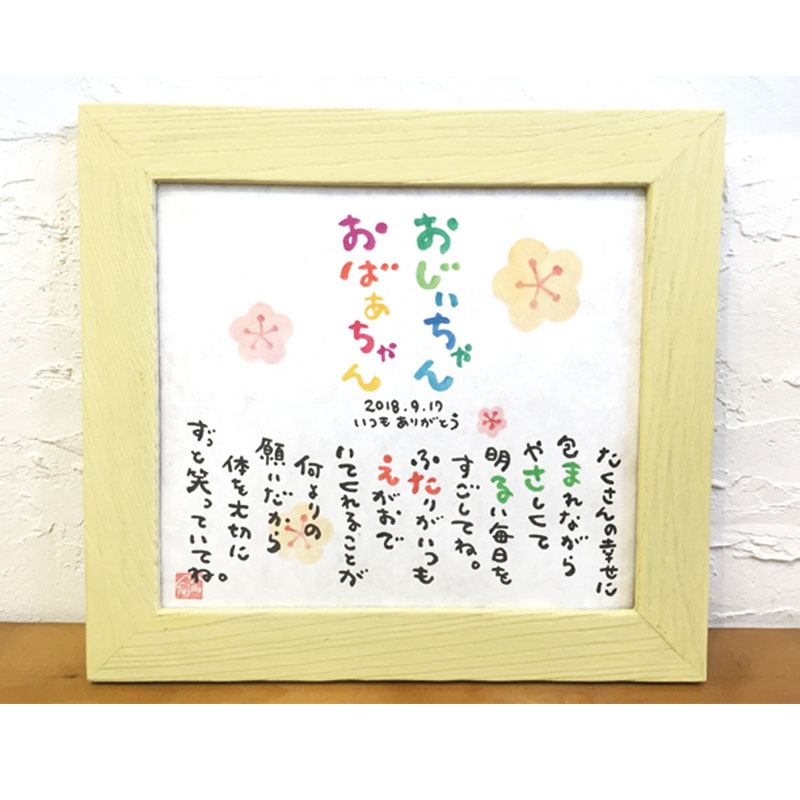 おじいちゃん
おばあちゃん
2018.9.17
いつもありがとう
たくさんの幸せに
包まれながら
やさしくて
明るい毎日を
すごしてね。
ふたりがいつも
えがおで
いてくれることが
何よりの
願いだから
体を大切に
ずっと笑っていてね。